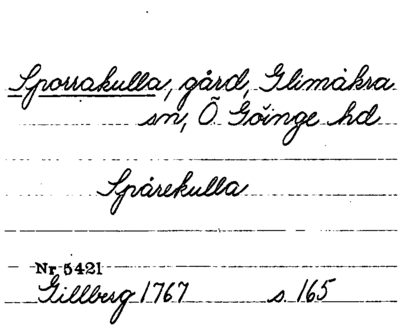 Sporrakulla, gård, Glimåkra
sn, Ö Göinge hd
Spårekulla
Nr 5421
Gillberg 1767 s. 165